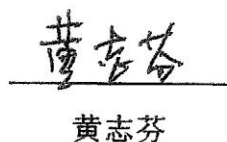 黄志芬
黄志芬